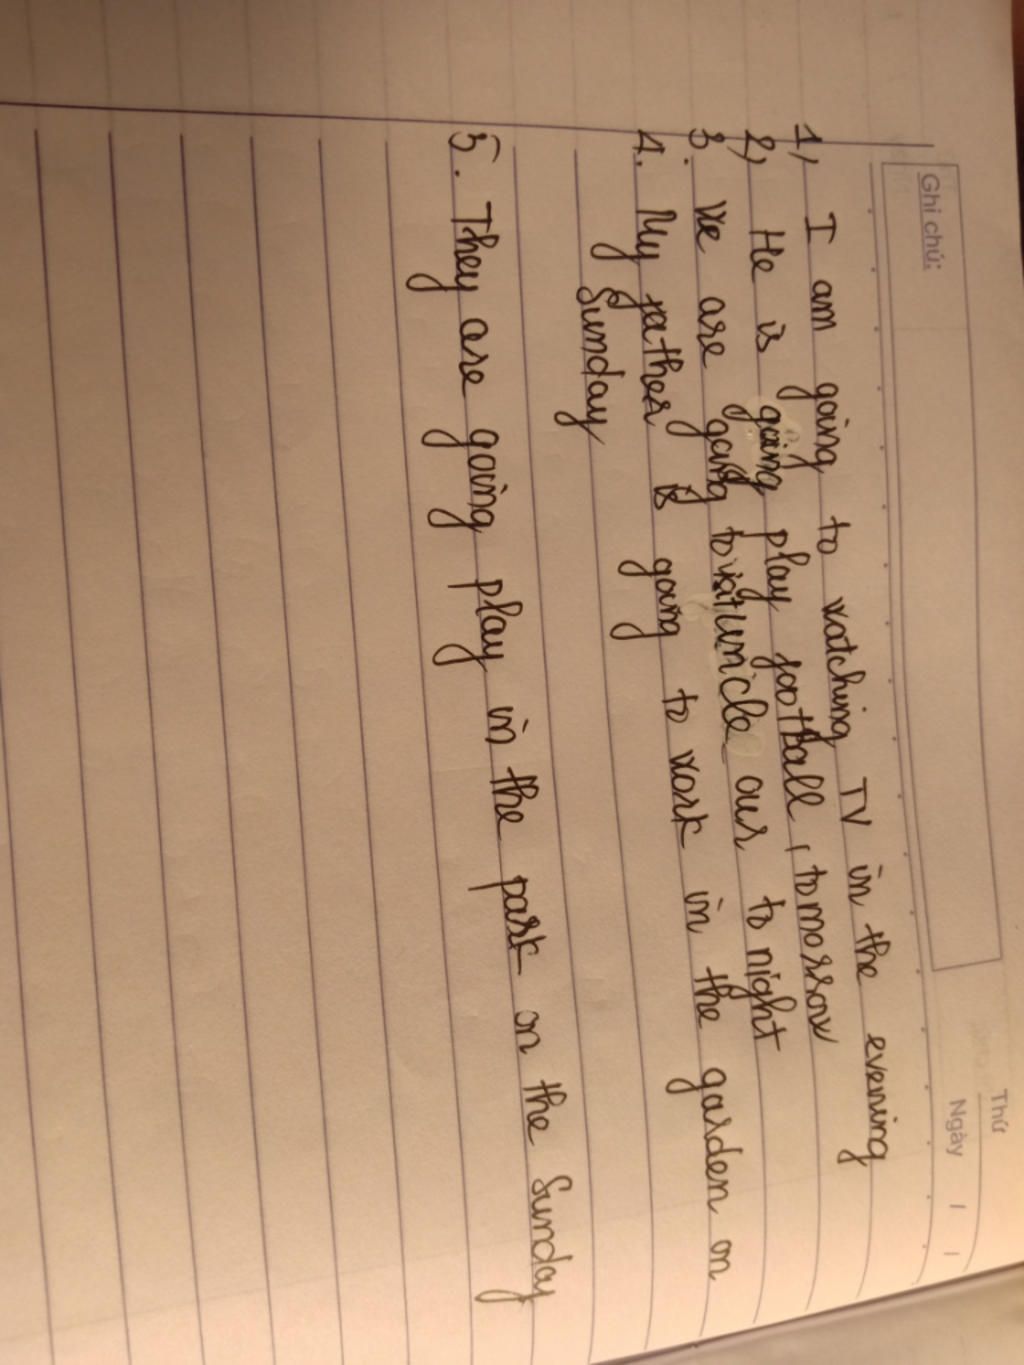 Thứ
Ngày / /
Ghi chú:
1, I am going to watching TV in the evening
2, He is going play football, tomorrow
3. We are going to visit uncle our to night
4. My father is going to work in the garden on
Sunday
5. They are going play in the park on the Sunday